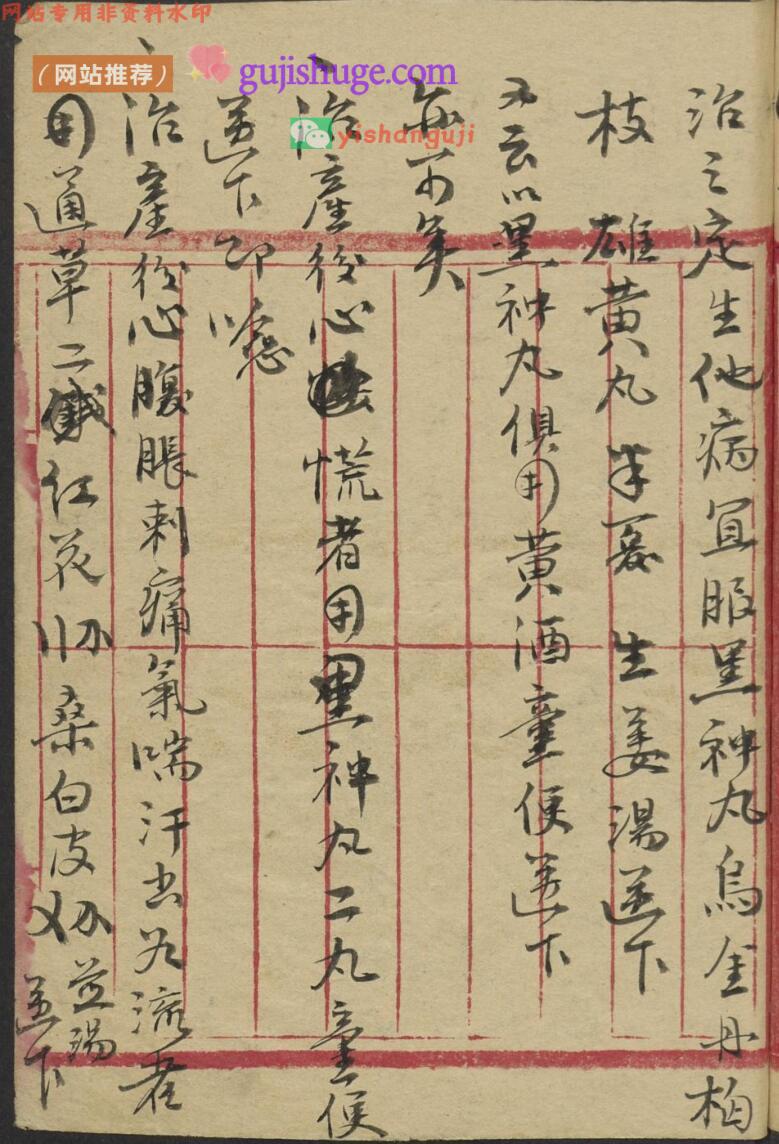 网站专用非资料水印
（网站推荐）
gujishuge.com
yishanguji
治之 生他病宜服黑神丸烏金丹柏
枝 雄黄丸 生姜湯送下
又云以黑神丸俱用黄酒童便送下
無不
、治産後心 慌者用黑神丸二丸童便
送下即
、治産後心腹脹刺痛氣喘汗出 流者
用通草二 紅花 桑白皮 湯
送下